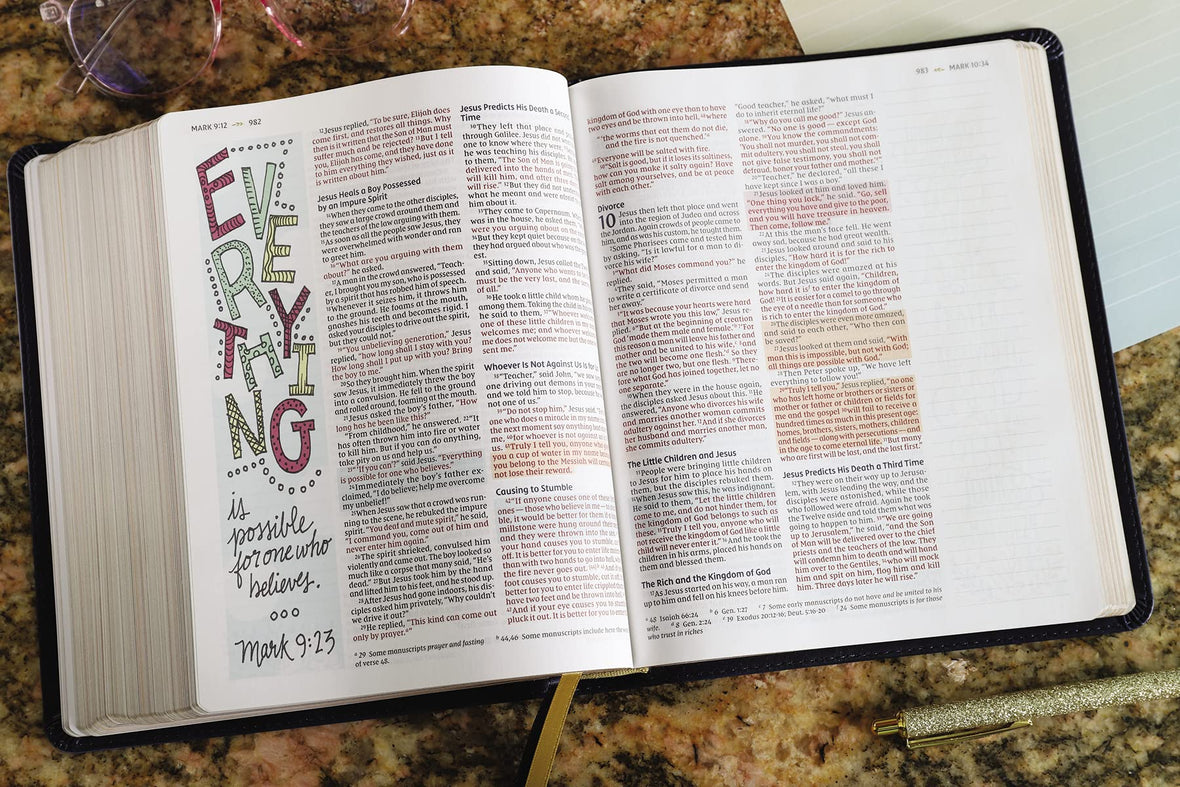 MARK 9:12 982
EVERYTHING
is
possible
for one who
believes.
Mark 9:23
12Jesus replied, "To be sure, Elijah does
come first, and restores all things. Why
then is it written that the Son of Man must
suffer much and be rejected? 13But I tell
you, Elijah has come, and they have done
to him everything they wished, just as it
is written about him."
Jesus Heals a Boy Possessed
by an Impure Spirit
14When they came to the other disciples,
they saw a large crowd around them and
the teachers of the law arguing with them.
15As soon as all the people saw Jesus, they
were overwhelmed with wonder and ran
to greet him.
16"What are you arguing with them
about?" he asked.
17A man in the crowd answered, "Teach-
er, I brought you my son, who is possessed
by a spirit that has robbed him of speech.
18Whenever it seizes him, it throws him
to the ground. He foams at the mouth,
gnashes his teeth and becomes rigid. I
asked your disciples to drive out the spirit,
but they could not."
19"You unbelieving generation," Jesus
replied, "how long shall I stay with you?
How long shall I put up with you? Bring
the boy to me."
20So they brought him. When the spirit
saw Jesus, it immediately threw the boy
into a convulsion. He fell to the ground
and rolled around, foaming at the mouth.
21Jesus asked the boy's father, "How
long has he been like this?"
"From childhood," he answered. 22"It
has often thrown him into fire or water
to kill him. But if you can do anything,
take pity on us and help us."
23"'If you can'?" said Jesus. "Everything
is possible for one who believes."
24Immediately the boy's father ex-
claimed, "I do believe; help me overcome
my unbelief!"
25When Jesus saw that a crowd was run-
ning to the scene, he rebuked the impure
spirit. "You deaf and mute spirit," he said,
"I command you, come out of him and
never enter him again."
26The spirit shrieked, convulsed him
violently and came out. The boy looked so
much like a corpse that many said, "He's
dead." 27But Jesus took him by the hand
and lifted him to his feet, and he stood up.
28After Jesus had gone indoors, his dis-
ciples asked him privately, "Why couldn't
we drive it out?"
29He replied, "This kind can come out
only by prayer.a"
Jesus Predicts His Death a Second
Time
30They left that place and
through Galilee. Jesus did not
one to know where they were,
he was teaching his disciples. He
to them, "The Son of Man is going
delivered into the hands of
will kill him, and after three
will rise." 32But they did not under
what he meant and were afraid
him about it.
33They came to Capernaum. When
was in the house, he asked them,
were you arguing about on the
34But they kept quiet because on
they had argued about who was the
est.
35Sitting down, Jesus called the
and said, "Anyone who wants to
must be the very last, and the
of all."
36He took a little child whom he
among them. Taking the child in
he said to them, 37"Whoever
one of these little children in my
welcomes me; and whoever
me does not welcome me but the
sent me."
Whoever Is Not Against Us Is for Us
38"Teacher," said John, "we saw
one driving out demons in your
and we told him to stop, because
not one of us."
39"Do not stop him," Jesus said.
one who does a miracle in my name
the next moment say anything
me, 40for whoever is not against
us. 41Truly I tell you, anyone who
you a cup of water in my name because
you belong to the Messiah will
not lose their reward.
Causing to Stumble
42"If anyone causes one of these
ones — those who believe in me — to
ble, it would be better for them if a
millstone were hung around their
and they were thrown into the
your hand causes you to stumble,
off. It is better for you to enter life
than with two hands to go into hell,
the fire never goes out.
foot causes you to stumble, cut it off.
is better for you to enter life crippled
have two feet and be thrown into hell.
And if your eye causes you to
pluck it out. It is better for you to enter
a 29 Some manuscripts prayer and fasting
of verse 48.
b 44,46 Some manuscripts include here the
983 MARK 10:34
kingdom of God with one eye than to have
two eyes and be thrown into hell, 48where
"'the worms that eat them do not die,
and the fire is not quenched.'a
49Everyone will be salted with fire.
50"Salt is good, but if it loses its saltiness,
how can you make it salty again? Have
salt among yourselves, and be at peace
with each other."
Divorce
10 Jesus then left that place and went
into the region of Judea and across
the Jordan. Again crowds of people came to
him, and as was his custom, he taught them.
2Some Pharisees came and tested him
by asking, "Is it lawful for a man to di-
vorce his wife?"
3"What did Moses command you?" he
replied.
4They said, "Moses permitted a man
to write a certificate of divorce and send
her away."
5"It was because your hearts were hard
that Moses wrote you this law," Jesus re-
plied. 6"But at the beginning of creation
God 'made them male and female.'b 7'For
this reason a man will leave his father and
mother and be united to his wife,c 8and
the two will become one flesh.'d So they
are no longer two, but one flesh. 9There-
fore what God has joined together, let no
one separate."
10When they were in the house again,
the disciples asked Jesus about this. 11He
answered, "Anyone who divorces his wife
and marries another woman commits
adultery against her. 12And if she divorces
her husband and marries another man,
she commits adultery."
The Little Children and Jesus
13People were bringing little children
to Jesus for him to place his hands on
them, but the disciples rebuked them.
14When Jesus saw this, he was indignant.
He said to them, "Let the little children
come to me, and do not hinder them, for
the kingdom of God belongs to such as
these. 15Truly I tell you, anyone who will
not receive the kingdom of God like a little
child will never enter it." 16And he took the
children in his arms, placed his hands on
them and blessed them.
The Rich and the Kingdom of God
17As Jesus started on his way, a man ran
up to him and fell on his knees before him.
"Good teacher," he asked, "what must I
do to inherit eternal life?"
18"Why do you call me good?" Jesus an-
swered. "No one is good — except God
alone. 19You know the commandments:
'You shall not murder, you shall not com-
mit adultery, you shall not steal, you shall
not give false testimony, you shall not
defraud, honor your father and mother.'e"
20"Teacher," he declared, "all these I
have kept since I was a boy."
21Jesus looked at him and loved him.
"One thing you lack," he said. "Go, sell
everything you have and give to the poor,
and you will have treasure in heaven.
Then come, follow me."
22At this the man's face fell. He went
away sad, because he had great wealth.
23Jesus looked around and said to his
disciples, "How hard it is for the rich to
enter the kingdom of God!"
24The disciples were amazed at his
words. But Jesus said again, "Children,
how hard it isf to enter the kingdom of
God! 25It is easier for a camel to go through
the eye of a needle than for someone who
is rich to enter the kingdom of God."
26The disciples were even more amazed,
and said to each other, "Who then can
be saved?"
27Jesus looked at them and said, "With
man this is impossible, but not with God;
all things are possible with God."
28Then Peter spoke up, "We have left
everything to follow you!"
29"Truly I tell you," Jesus replied, "no one
who has left home or brothers or sisters or
mother or father or children or fields for
me and the gospel 30will fail to receive a
hundred times as much in this present age:
homes, brothers, sisters, mothers, children
and fields — along with persecutions — and
in the age to come eternal life. 31But many
who are first will be last, and the last first."
Jesus Predicts His Death a Third Time
32They were on their way up to Jerusa-
lem, with Jesus leading the way, and the
disciples were astonished, while those
who followed were afraid. Again he took
the Twelve aside and told them what was
going to happen to him. 33"We are going
up to Jerusalem," he said, "and the Son
of Man will be delivered over to the chief
priests and the teachers of the law. They
will condemn him to death and will hand
him over to the Gentiles, 34who will mock
him and spit on him, flog him and kill
him. Three days later he will rise."
a 48 Isaiah 66:24 b 6 Gen. 1:27 c 7 Some early manuscripts do not have and be united to his
wife. d 8 Gen. 2:24 e 19 Exodus 20:12-16; Deut. 5:16-20 f 24 Some manuscripts is for those
who trust in riches